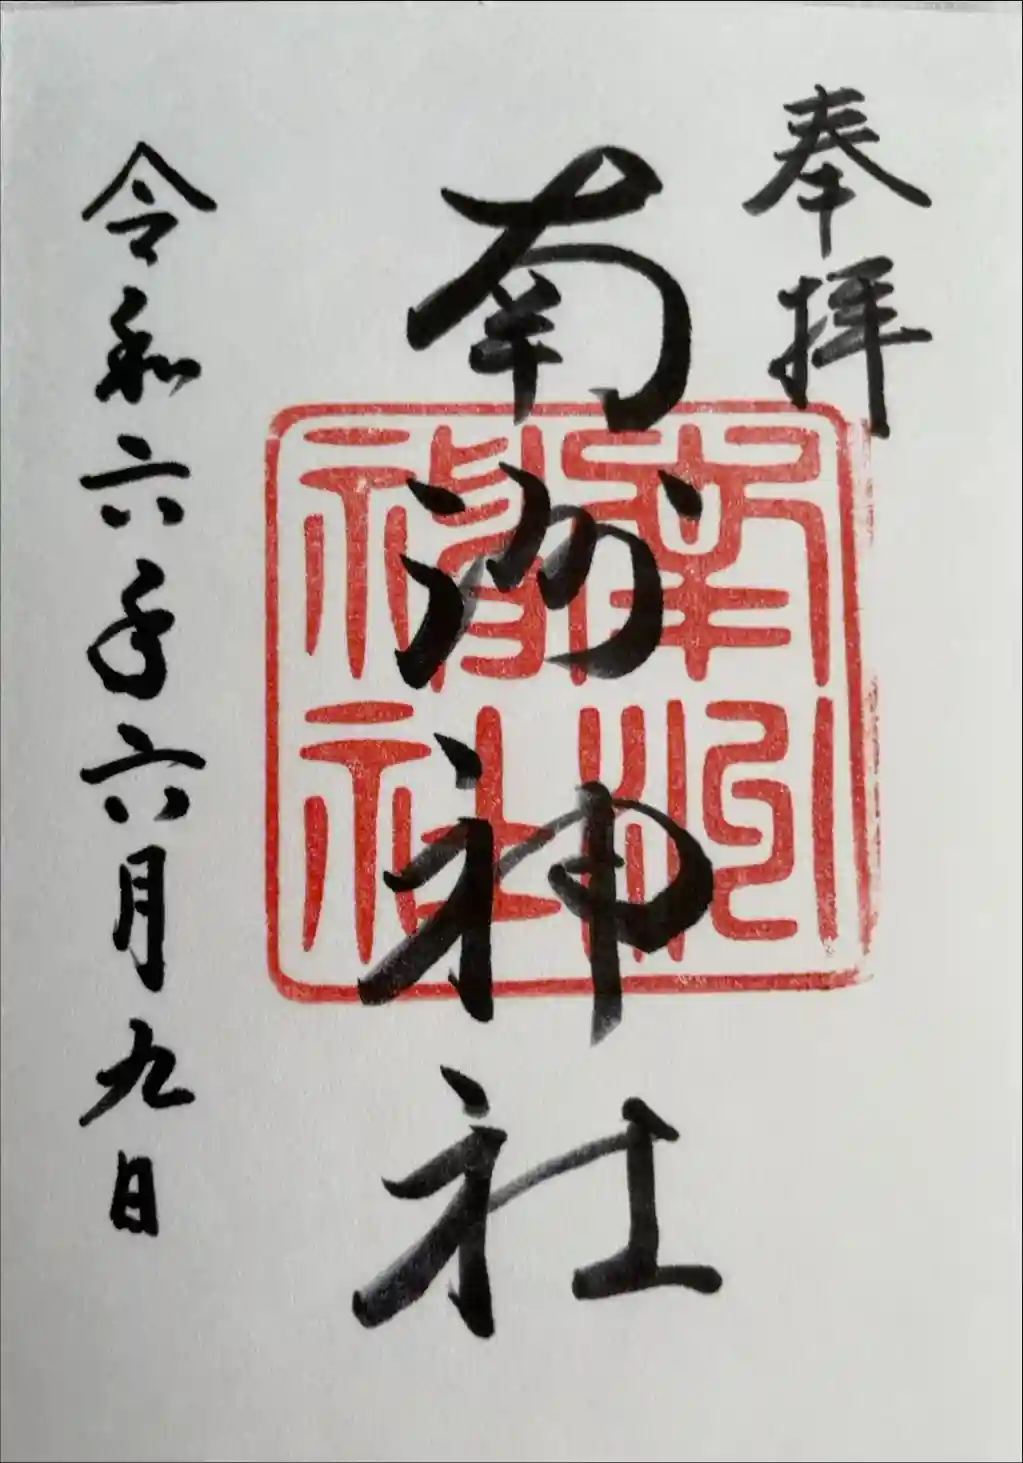 奉拝
南洲神社
南洲神社
令和六年六月九日